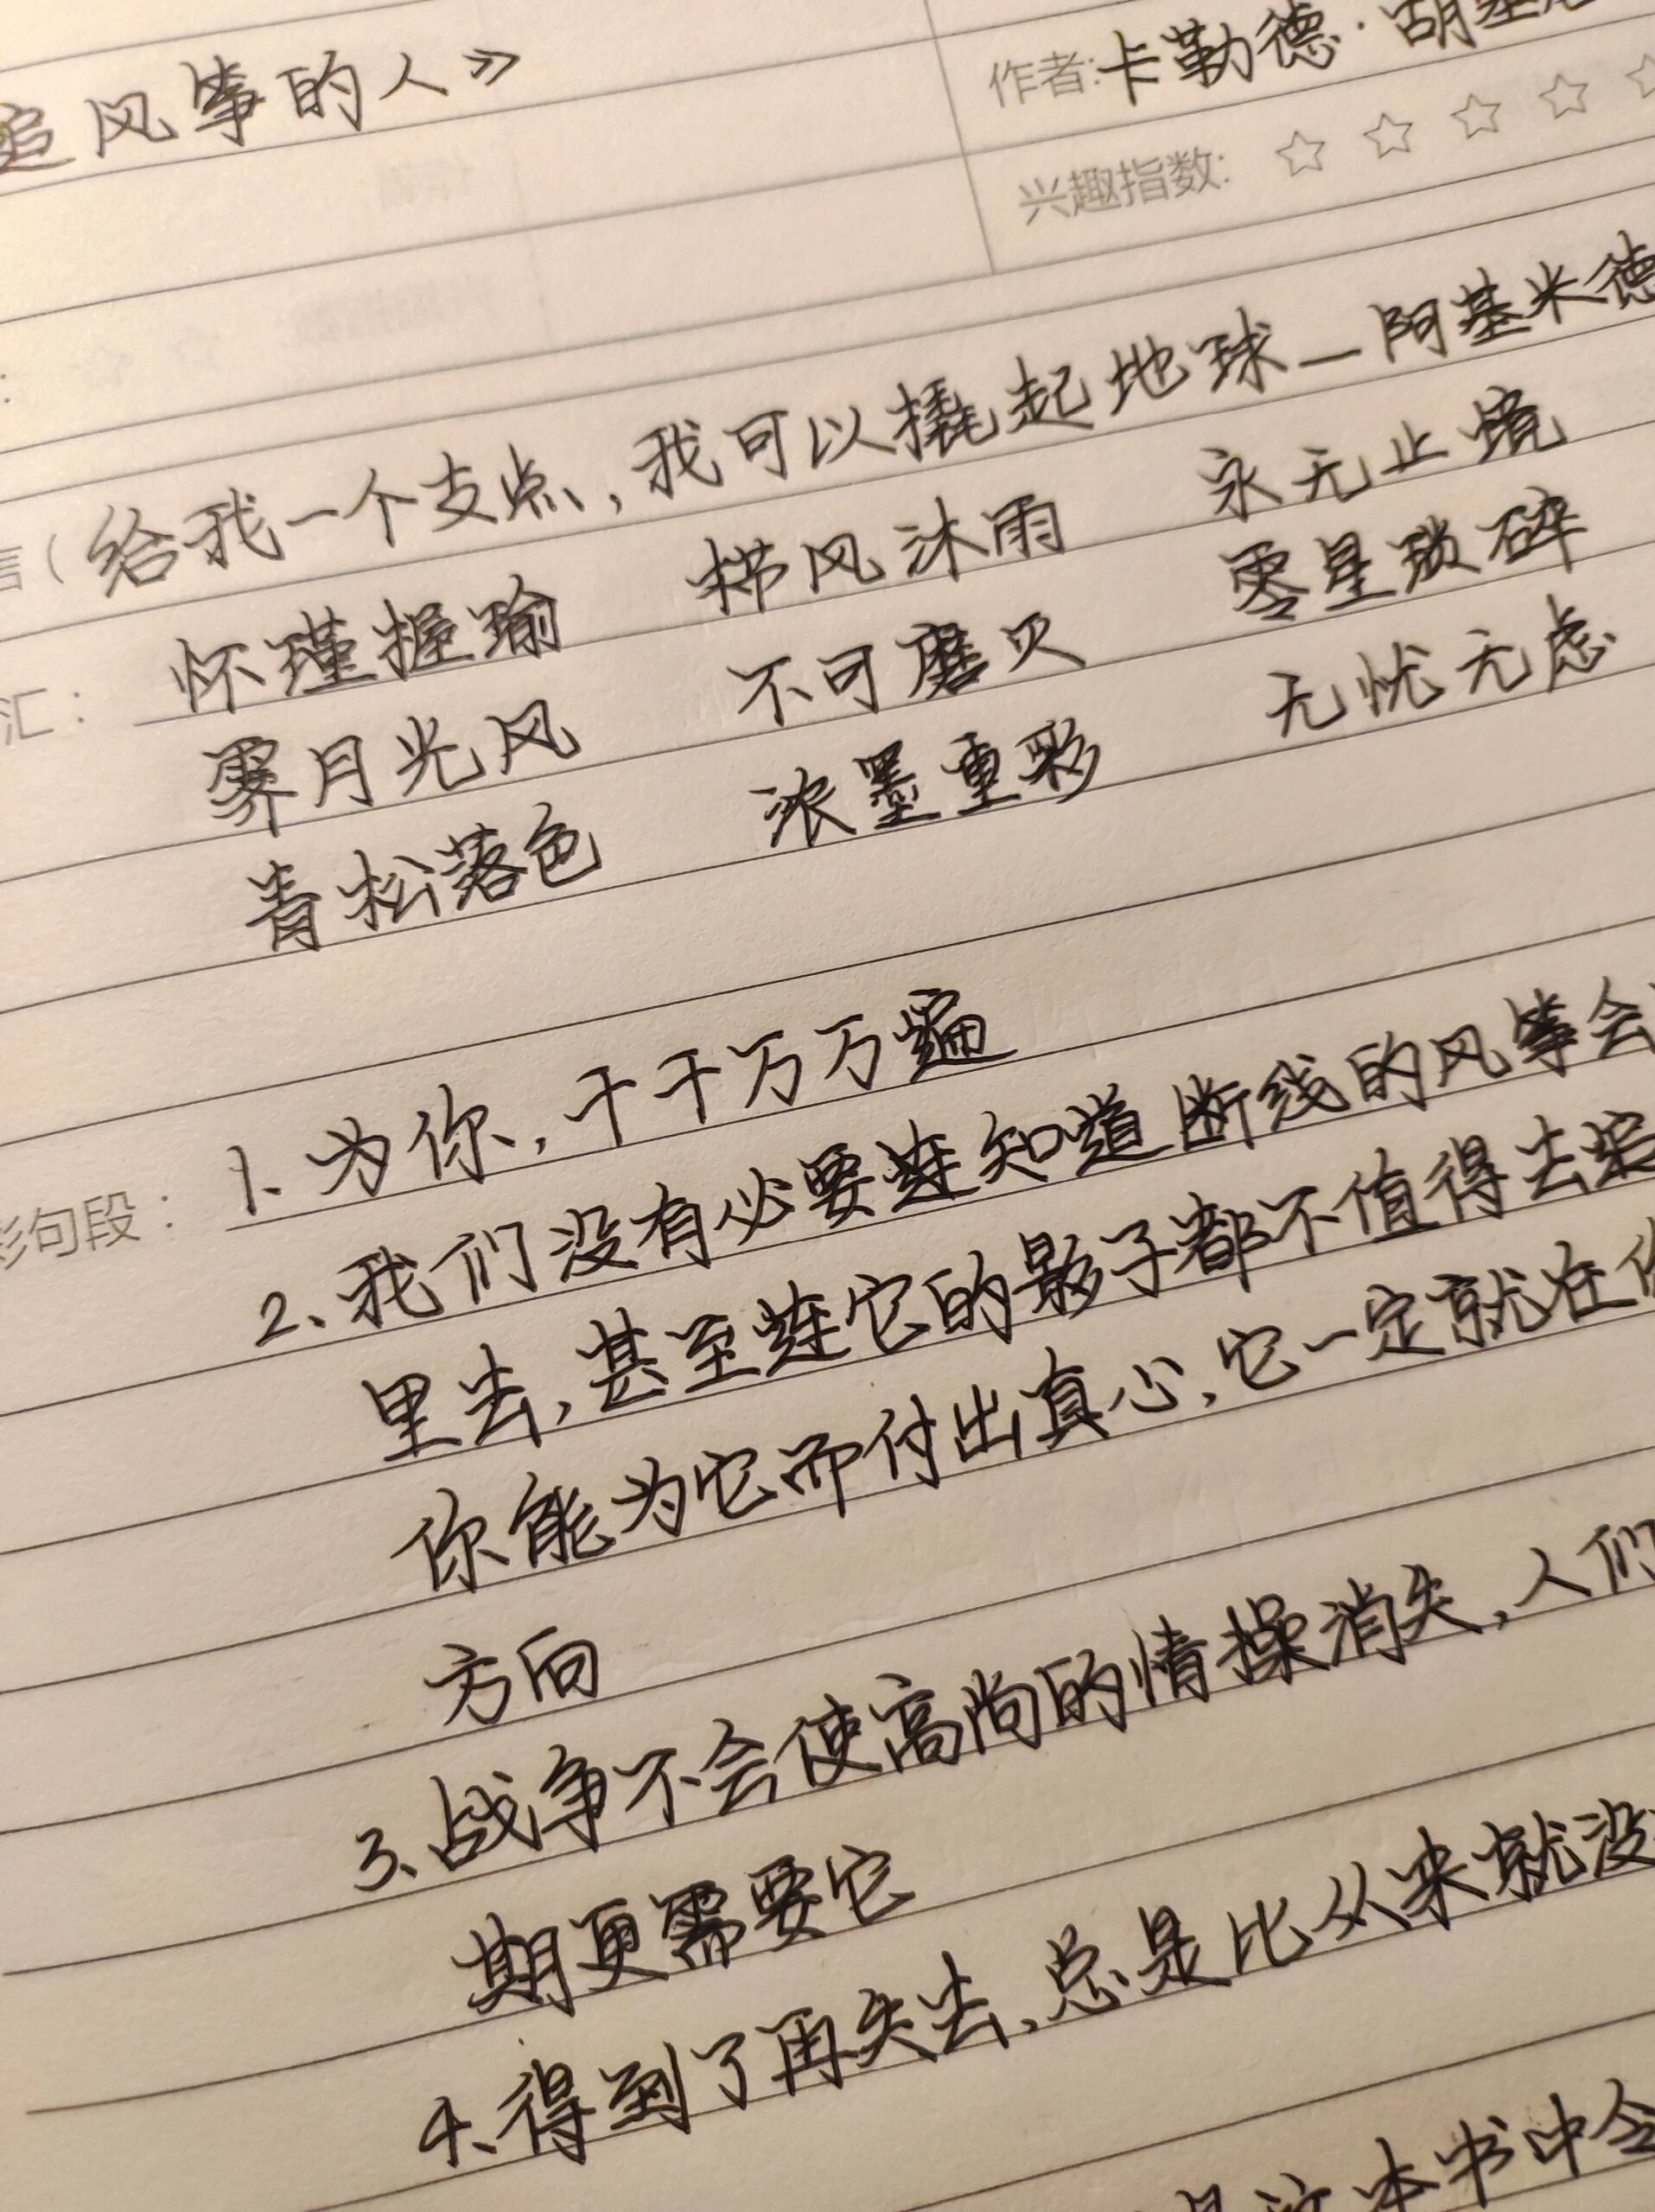 追风筝的人》
作者:卡勒德·胡基
兴趣指数: ☆ ☆ ☆ ☆ ☆
(给我一个支点,我可以撬起地球—阿基米德
汇: 怀瑾握瑜 栉风沐雨 永无止境
霁月光风 不可磨灭 零星琐碎
青松落色 浓墨重彩 无忧无虑
句段: 1、为你,千千万万遍
2、我们没有必要连知道断线的风筝会
里去,甚至连它的影子都不值得去追
你能为它而付出真心,它一定就在你
方向
3、战争不会使高尚的情操消失,人们
期更需要它
4、得到了再失去,总是比从来就没
是这本书中会